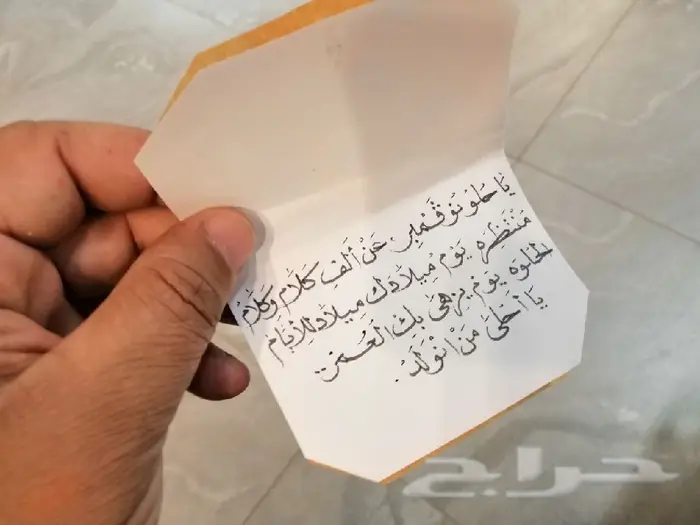 يَا حلو نوڤمبر عَنْ ألف كَلَام وكَلَامْ
مَنْتَظَره يَوْم مِيلَادك مِيلَاد للأيَام
الحلوه يَوم يزهَى بك العُمر
يَا أحلَى مَنْ انْولَدْ.
حراج